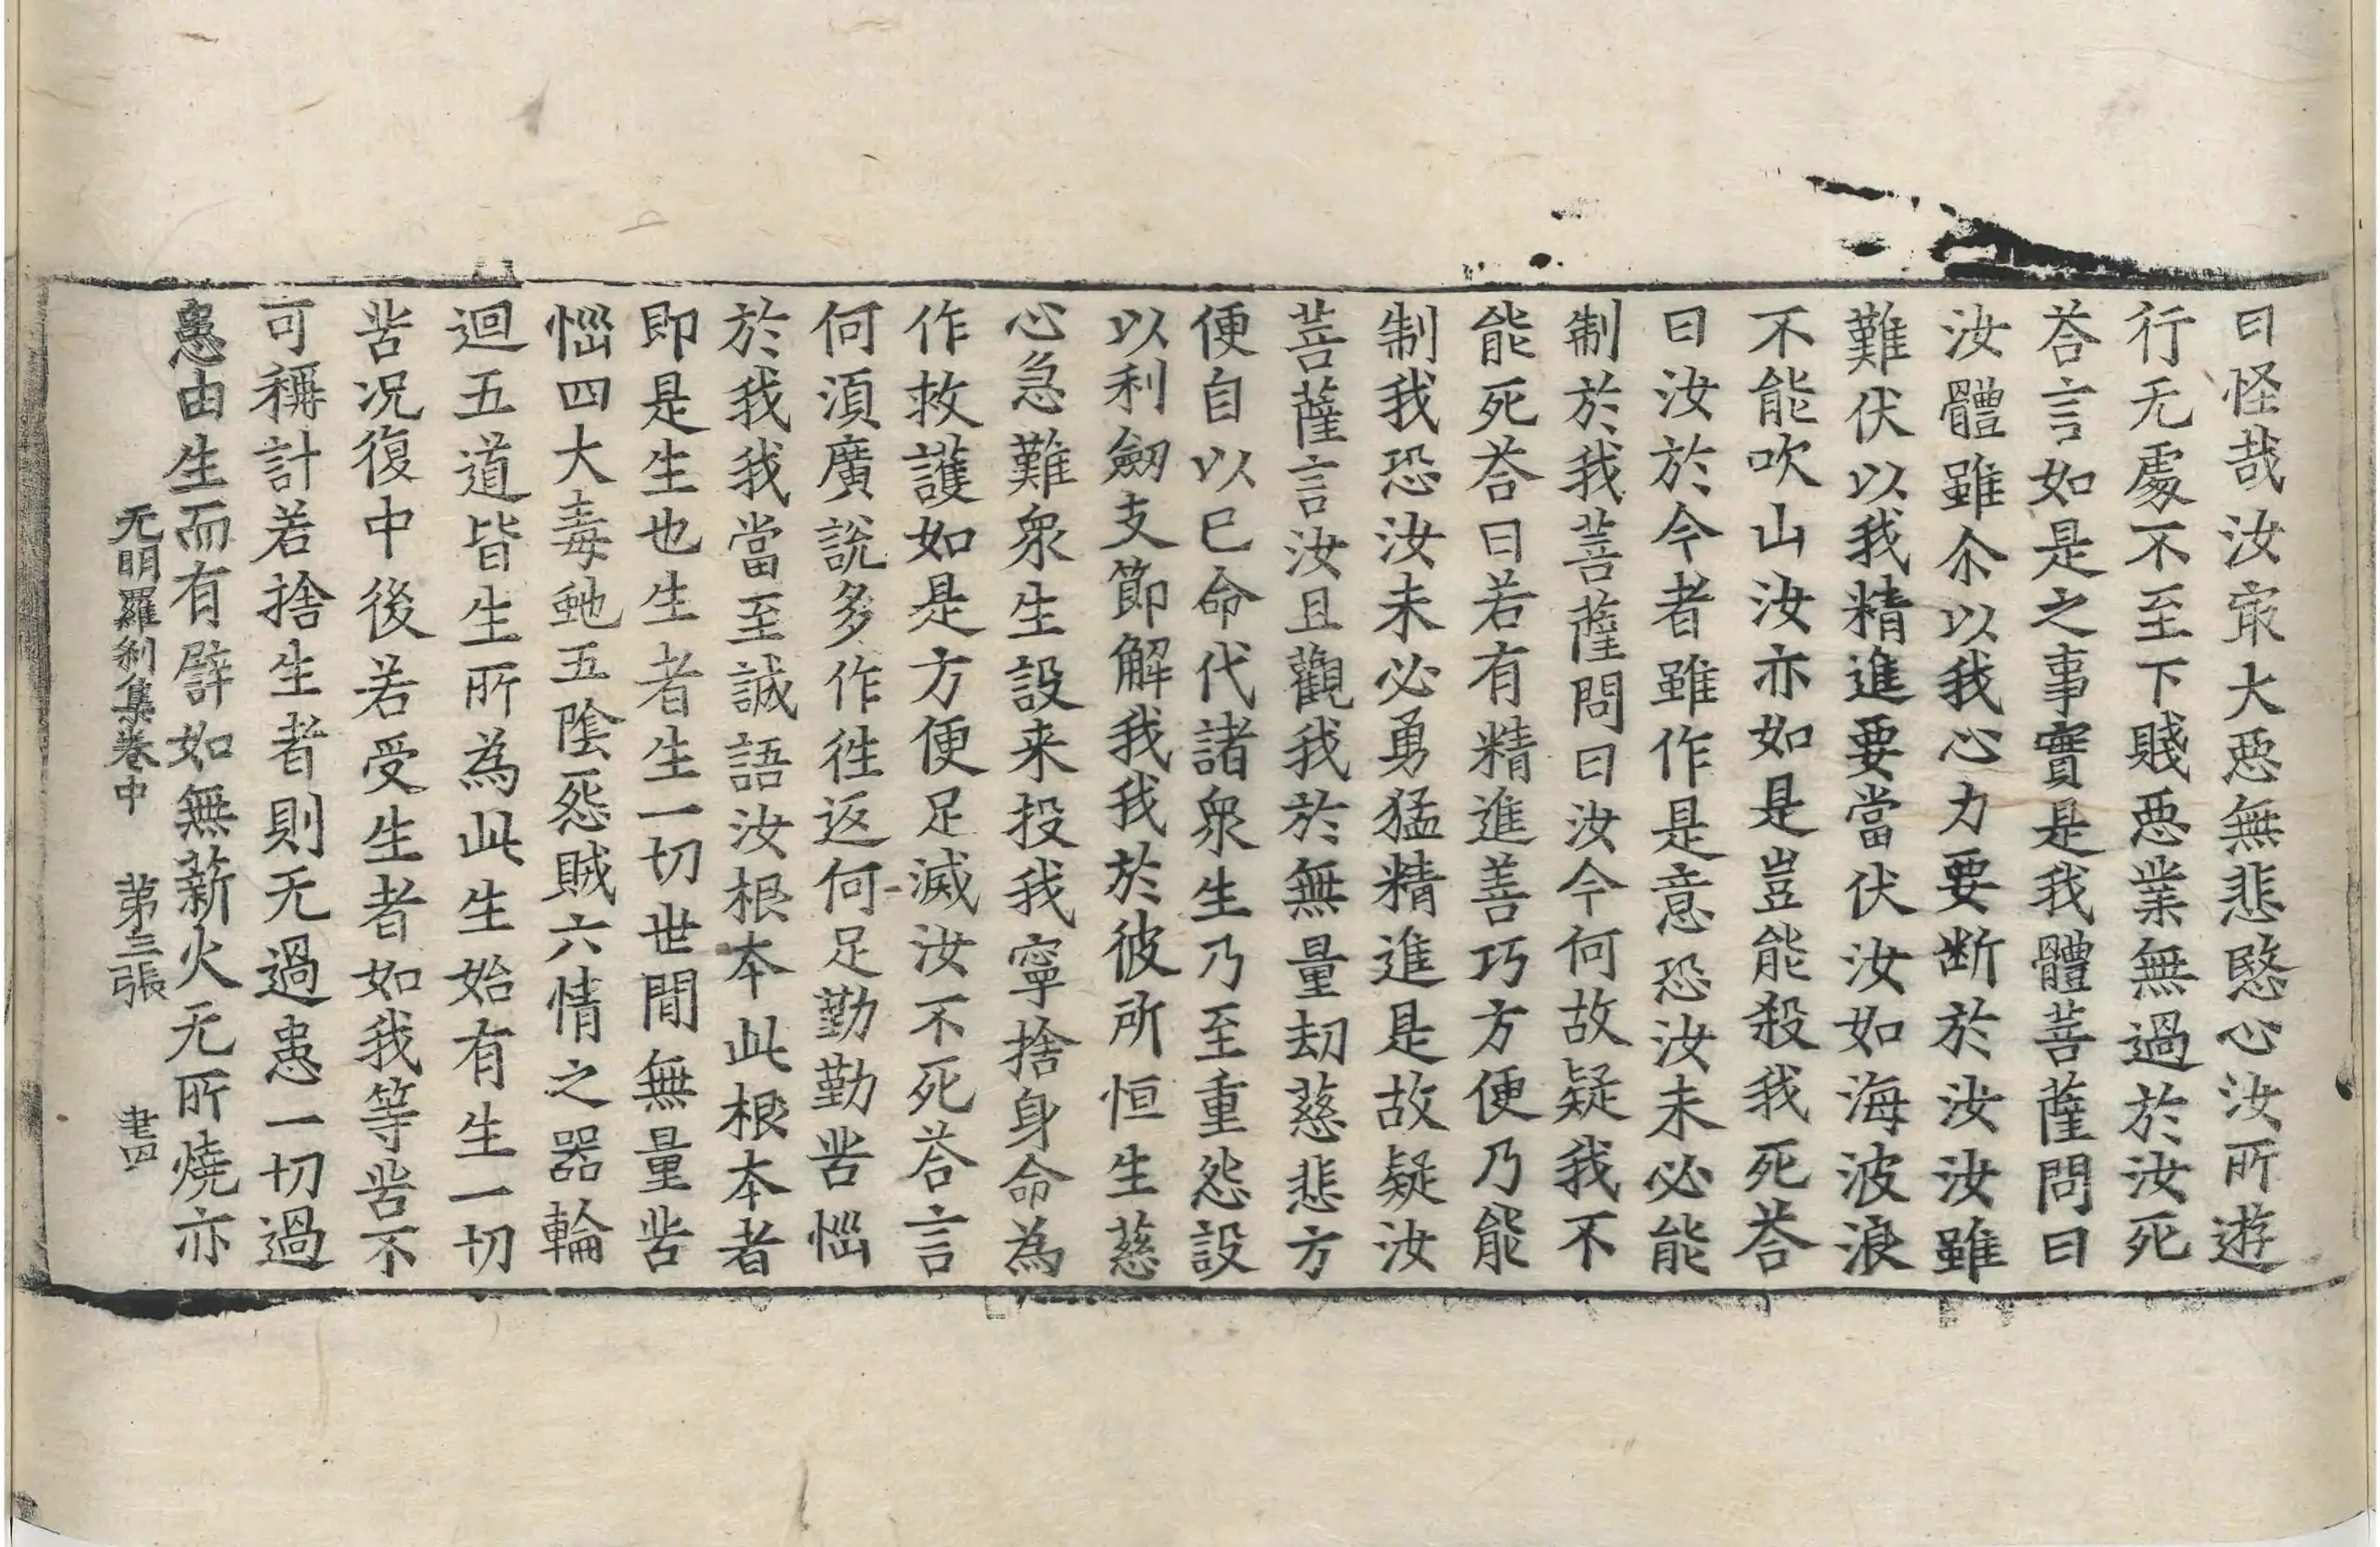 曰怪哉汝㝡大惡無悲愍心汝所遊
行无處不至下賤惡業無過於汝死
荅言如是之事實是我體菩薩問曰
汝體雖尒以我心力要断於汝汝雖
難伏以我精進要當伏汝如海波浪
不能吹山汝亦如是豈能殺我死荅
曰汝於今者雖作是意恐汝未必能
制於我菩薩問曰汝今何故疑我不
能死荅曰若有精進善巧方便乃能
制我恐汝未必勇猛精進是故疑汝
菩薩言汝且觀我於無量劫慈悲方
便自以已命代諸衆生乃至重怨設
以利劒支節解我我於彼所恒生慈
心急難衆生設来投我寧捨身命為
作救護如是方便足滅汝不死荅言
何湏廣說多作往返何足勤勤苦惱
於我我當至誠語汝根本此根本者
即是生也生者生一切世間無量苦
惱四大毒虵五隂怨賊六情之器輪
迴五道皆生所為此生始有生一切
苦况復中後若受生者如我等苦不
可稱計若捨生者則无過患一切過
患由生而有譬如無薪火无所燒亦
无明羅刹集卷中 第三張 書四